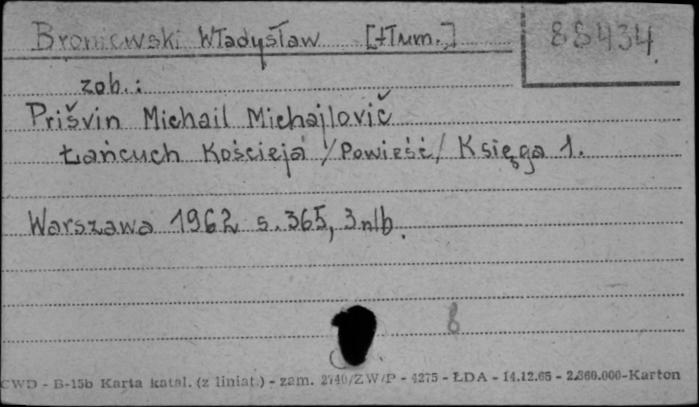 Broniewski Władysław [tłum.] 88434
zob.:
Prišvin Michail Michajlovič
Łańcuch Kościeja /Powieść/ Księga 1.
Warszawa 1962 s. 365, 3 nlb.
8
CWD - B-15b Karta katal. (z liniat.) - zam. 2740/ZW/P - 4275 - ŁDA - 14.12.65 - 2.860.000-Karton